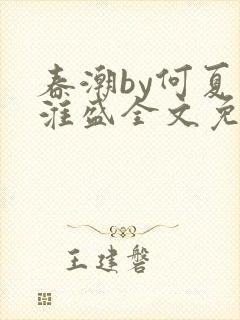 春潮by何夏
淮盛全文免
王建磐